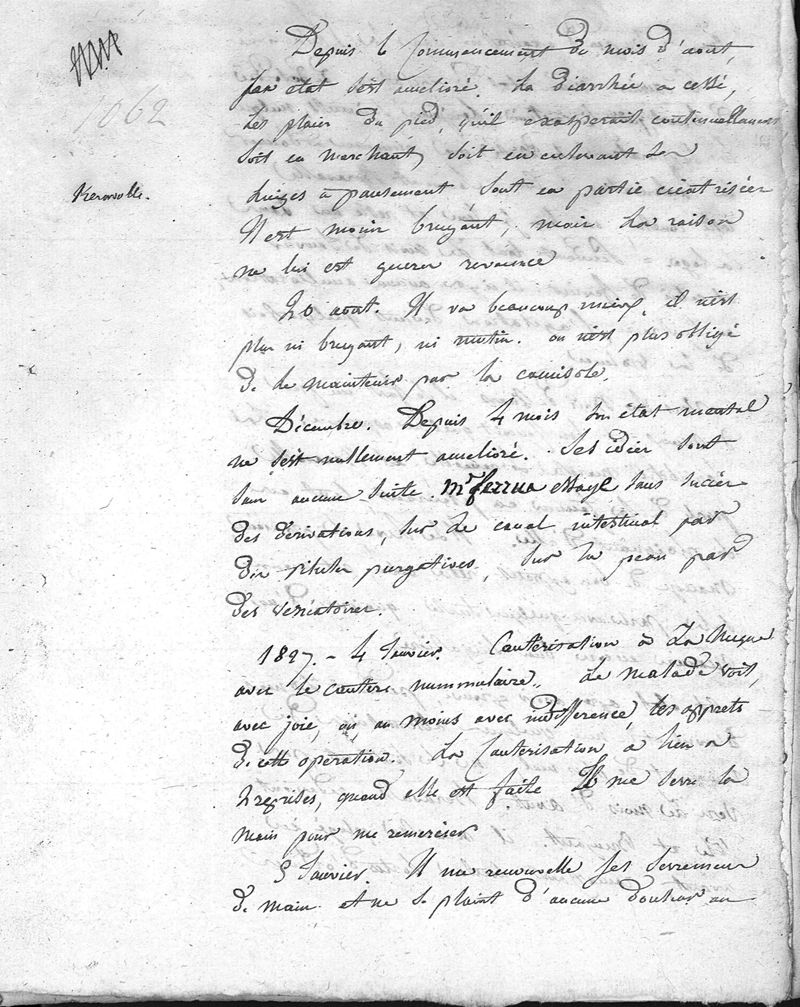 1062
Depuis le commancement du mois d'aout,
son etat s'est amelioré. La diarrhée a cessé,
Les plaies du pied, qu'il exasperait continuellement
soit en marchant, soit en enlevant les
linges a pansement sont en partie cicatrisées
Il est moins bruyant, mais la raison
ne lui est gueres revenue
20 aout. Il va beaucoup mieux, il n'est
plus ni bruyant, ni mutin. on n'est plus obligé
de le maintenir par la camisole.
Décembre. Depuis 4 mois son etat mental
ne s'est nullement amelioré. Ses idées sont
sans aucune suite. Mr ferrus essaye sans succès
des dérivations, sur le canal intestinal par
des pilules purgatives, sur la peau par
des vesicatoires.
1827. - 4 Janvier. Cauterisation à la Nuque
avec le cautere nummulaire. Le malade voit,
avec joie, ou, au moins avec indifference, les apprets
de cette operation. La Cauterisation a lieu a
2 reprises, quand elle est faite Il me serre la
main pour me remercier
5 Janvier. Il me renouvelle ses serremens
de main et ne se plaint d'aucune douleur au